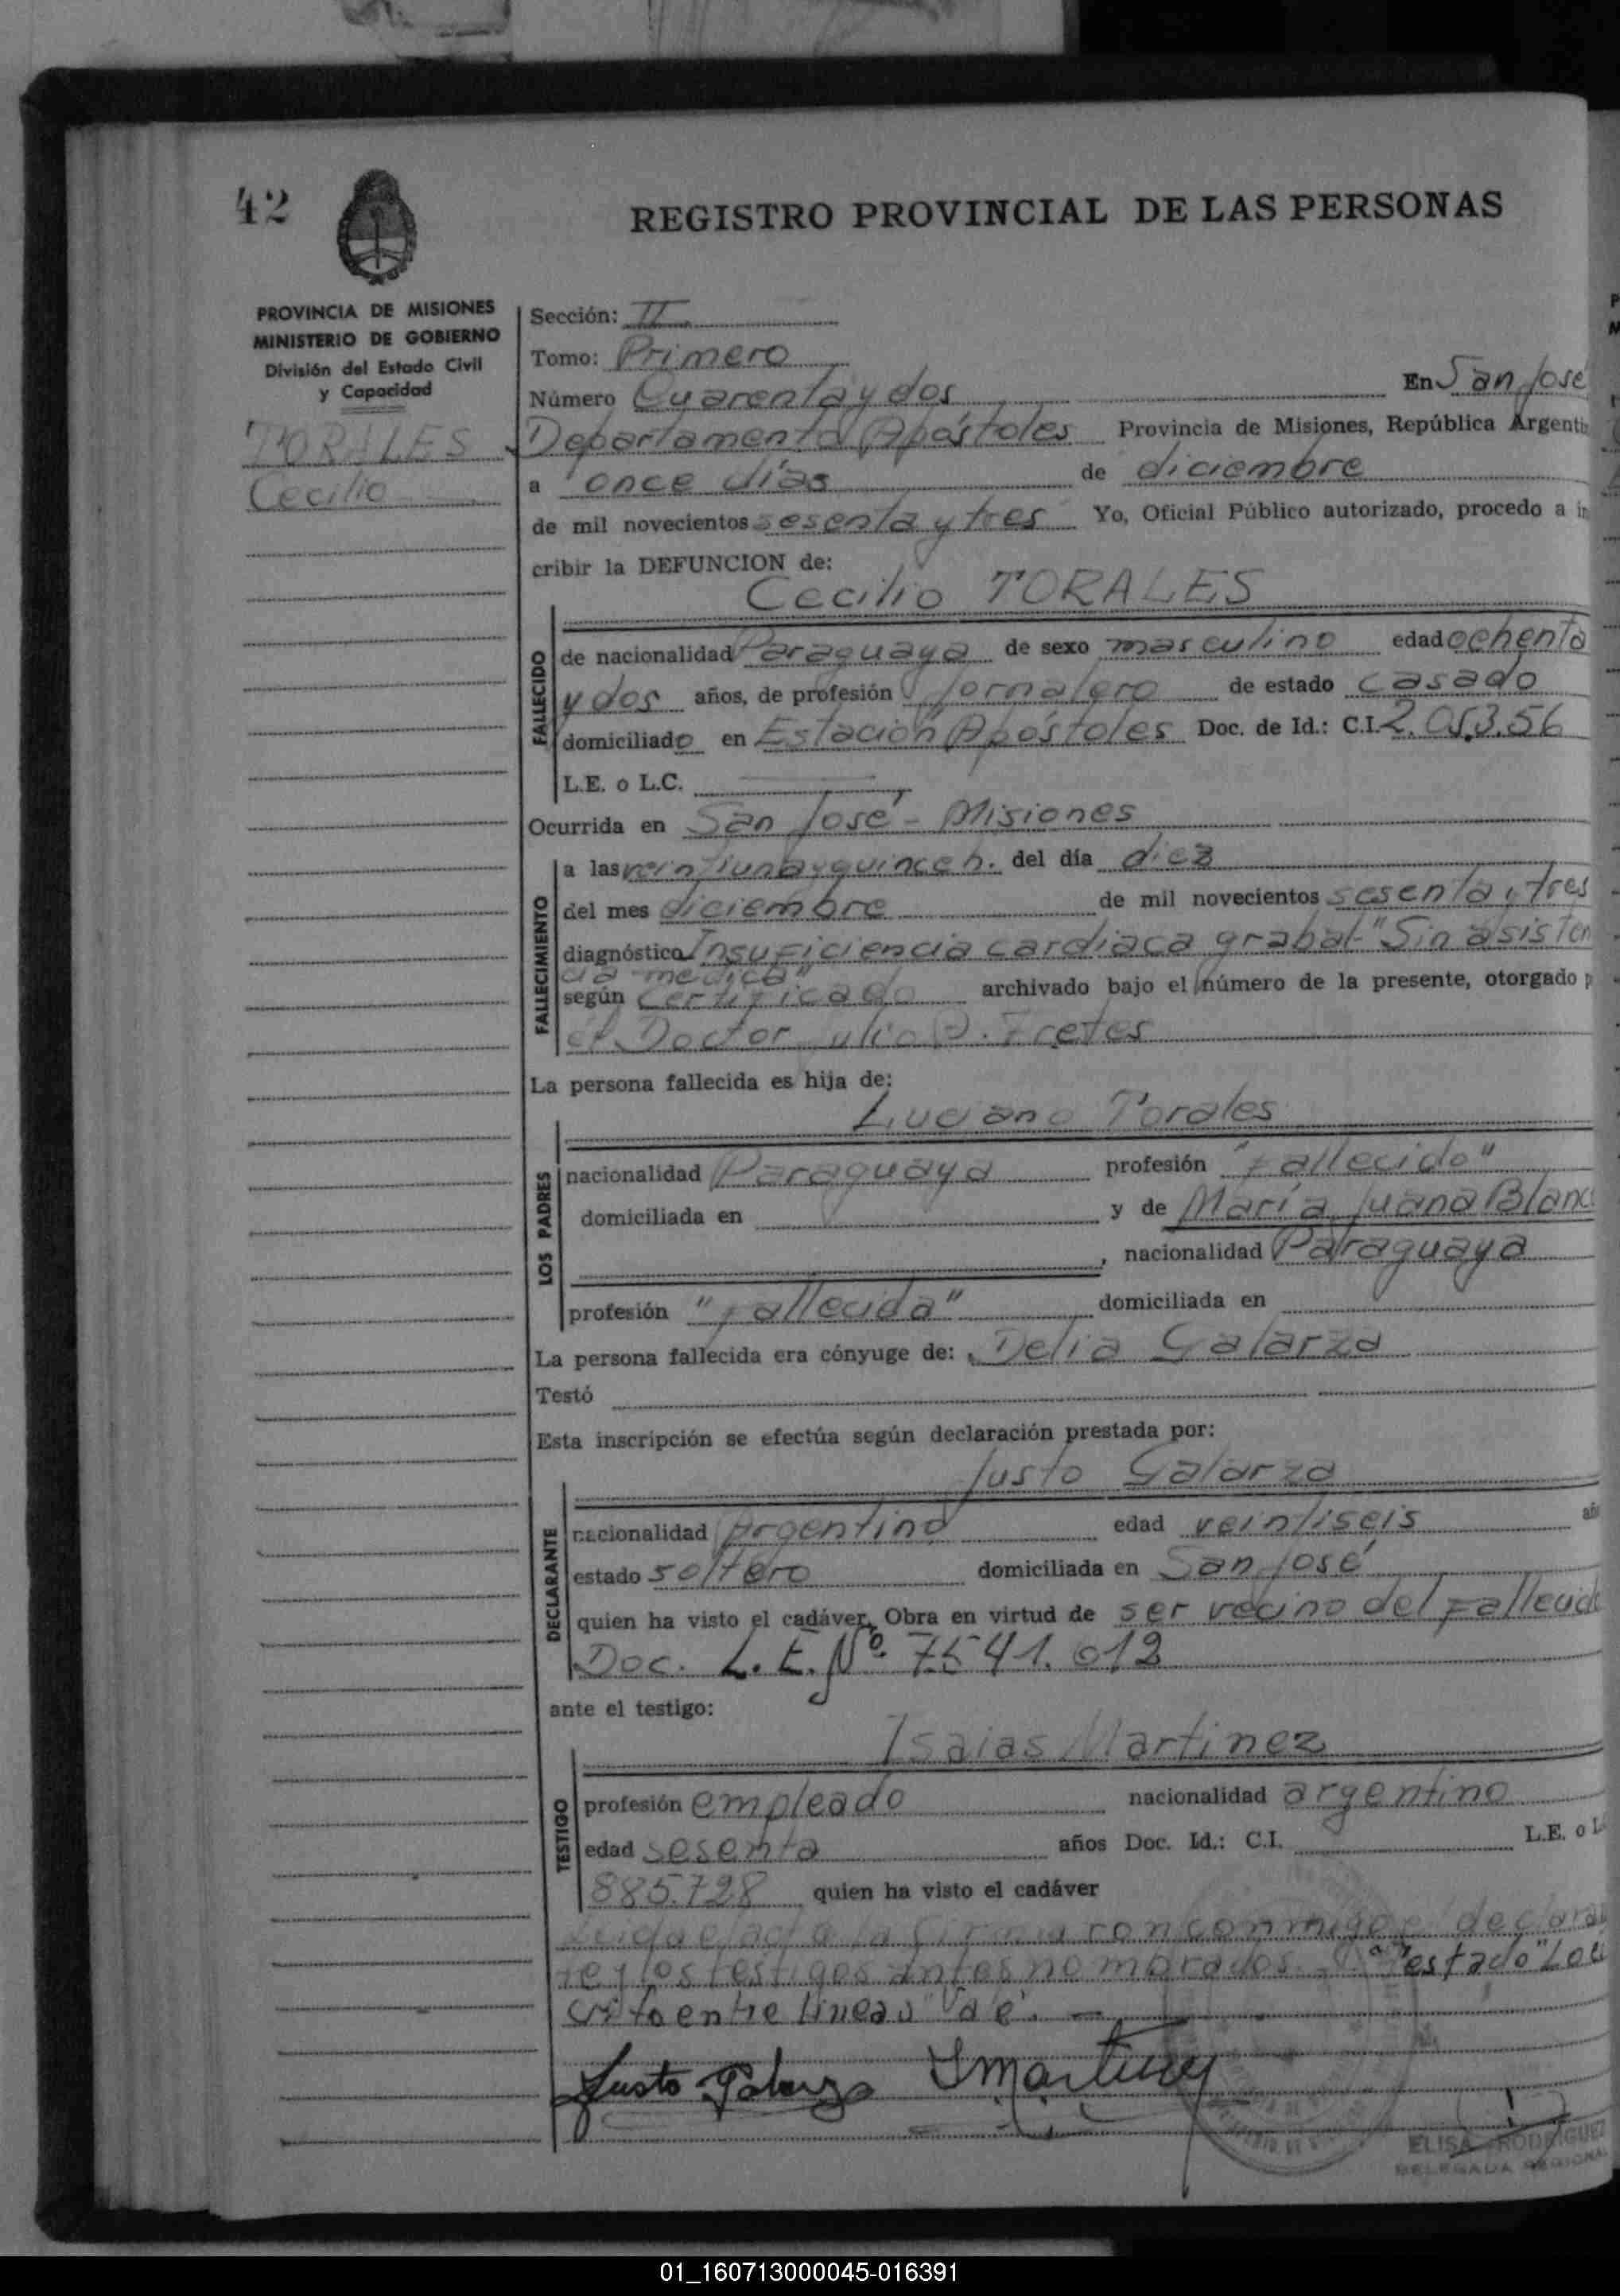 42
REGISTRO PROVINCIAL DE LAS PERSONAS
PROVINCIA DE MISIONES
MINISTERIO DE GOBIERNO
División del Estado Civil
y Capacidad
TORALES
Cecilio
Sección: II
Tomo: Primero
Número Cuarenta y dos En San José
Departamento Apóstoles Provincia de Misiones, República Argenti
a once días de diciembre
de mil novecientos sesenta y tres Yo, Oficial Público autorizado, procedo a in
cribir la DEFUNCION de:
Cecilio TORALES
FALLECIDO
de nacionalidad Paraguaya de sexo masculino edad ochenta
y dos años, de profesión Jornalero de estado casado
domiciliado en Estación Apóstoles Doc. de Id.: C.I. 2.053.56
L.E. o L.C.
Ocurrida en San José - Misiones
FALLECIMIENTO
a las veintiuna y quince h. del día diez
del mes diciembre de mil novecientos sesenta y tres
diagnóstico Insuficiencia cardiaca grabal- "Sin asisten
cia medica"
según certificado archivado bajo el número de la presente, otorgado p
el Doctor Julio D. Fretes
La persona fallecida es hija de:
Luciano Torales
LOS PADRES
nacionalidad Paraguaya profesión "Fallecido"
domiciliada en y de María Juana Blanc
, nacionalidad Paraguaya
profesión "Fallecida" domiciliada en
La persona fallecida era cónyuge de: Delia Galarza
Testó
Esta inscripción se efectúa según declaración prestada por:
Justo Galarza
DECLARANTE
nacionalidad Argentino edad veintiseis añ
estado soltero domiciliada en San José
quien ha visto el cadáver, Obra en virtud de ser vecino del fallecido
Doc. L.E. Nº 7.541.012
ante el testigo:
Isaias Martinez
TESTIGO
profesión empleado nacionalidad argentino
edad sesenta años Doc. Id.: C.I. L.E. o L
885.728 quien ha visto el cadáver
Leida el acta la firmaron conmigo el declaran
te y los testigos antes nombrados. testado
entre lineas "Vale".
Justo Galarza I Martinez
ELISA RODRIGUEZ
DELEGADA REGIONAL
01_160713000045-016391